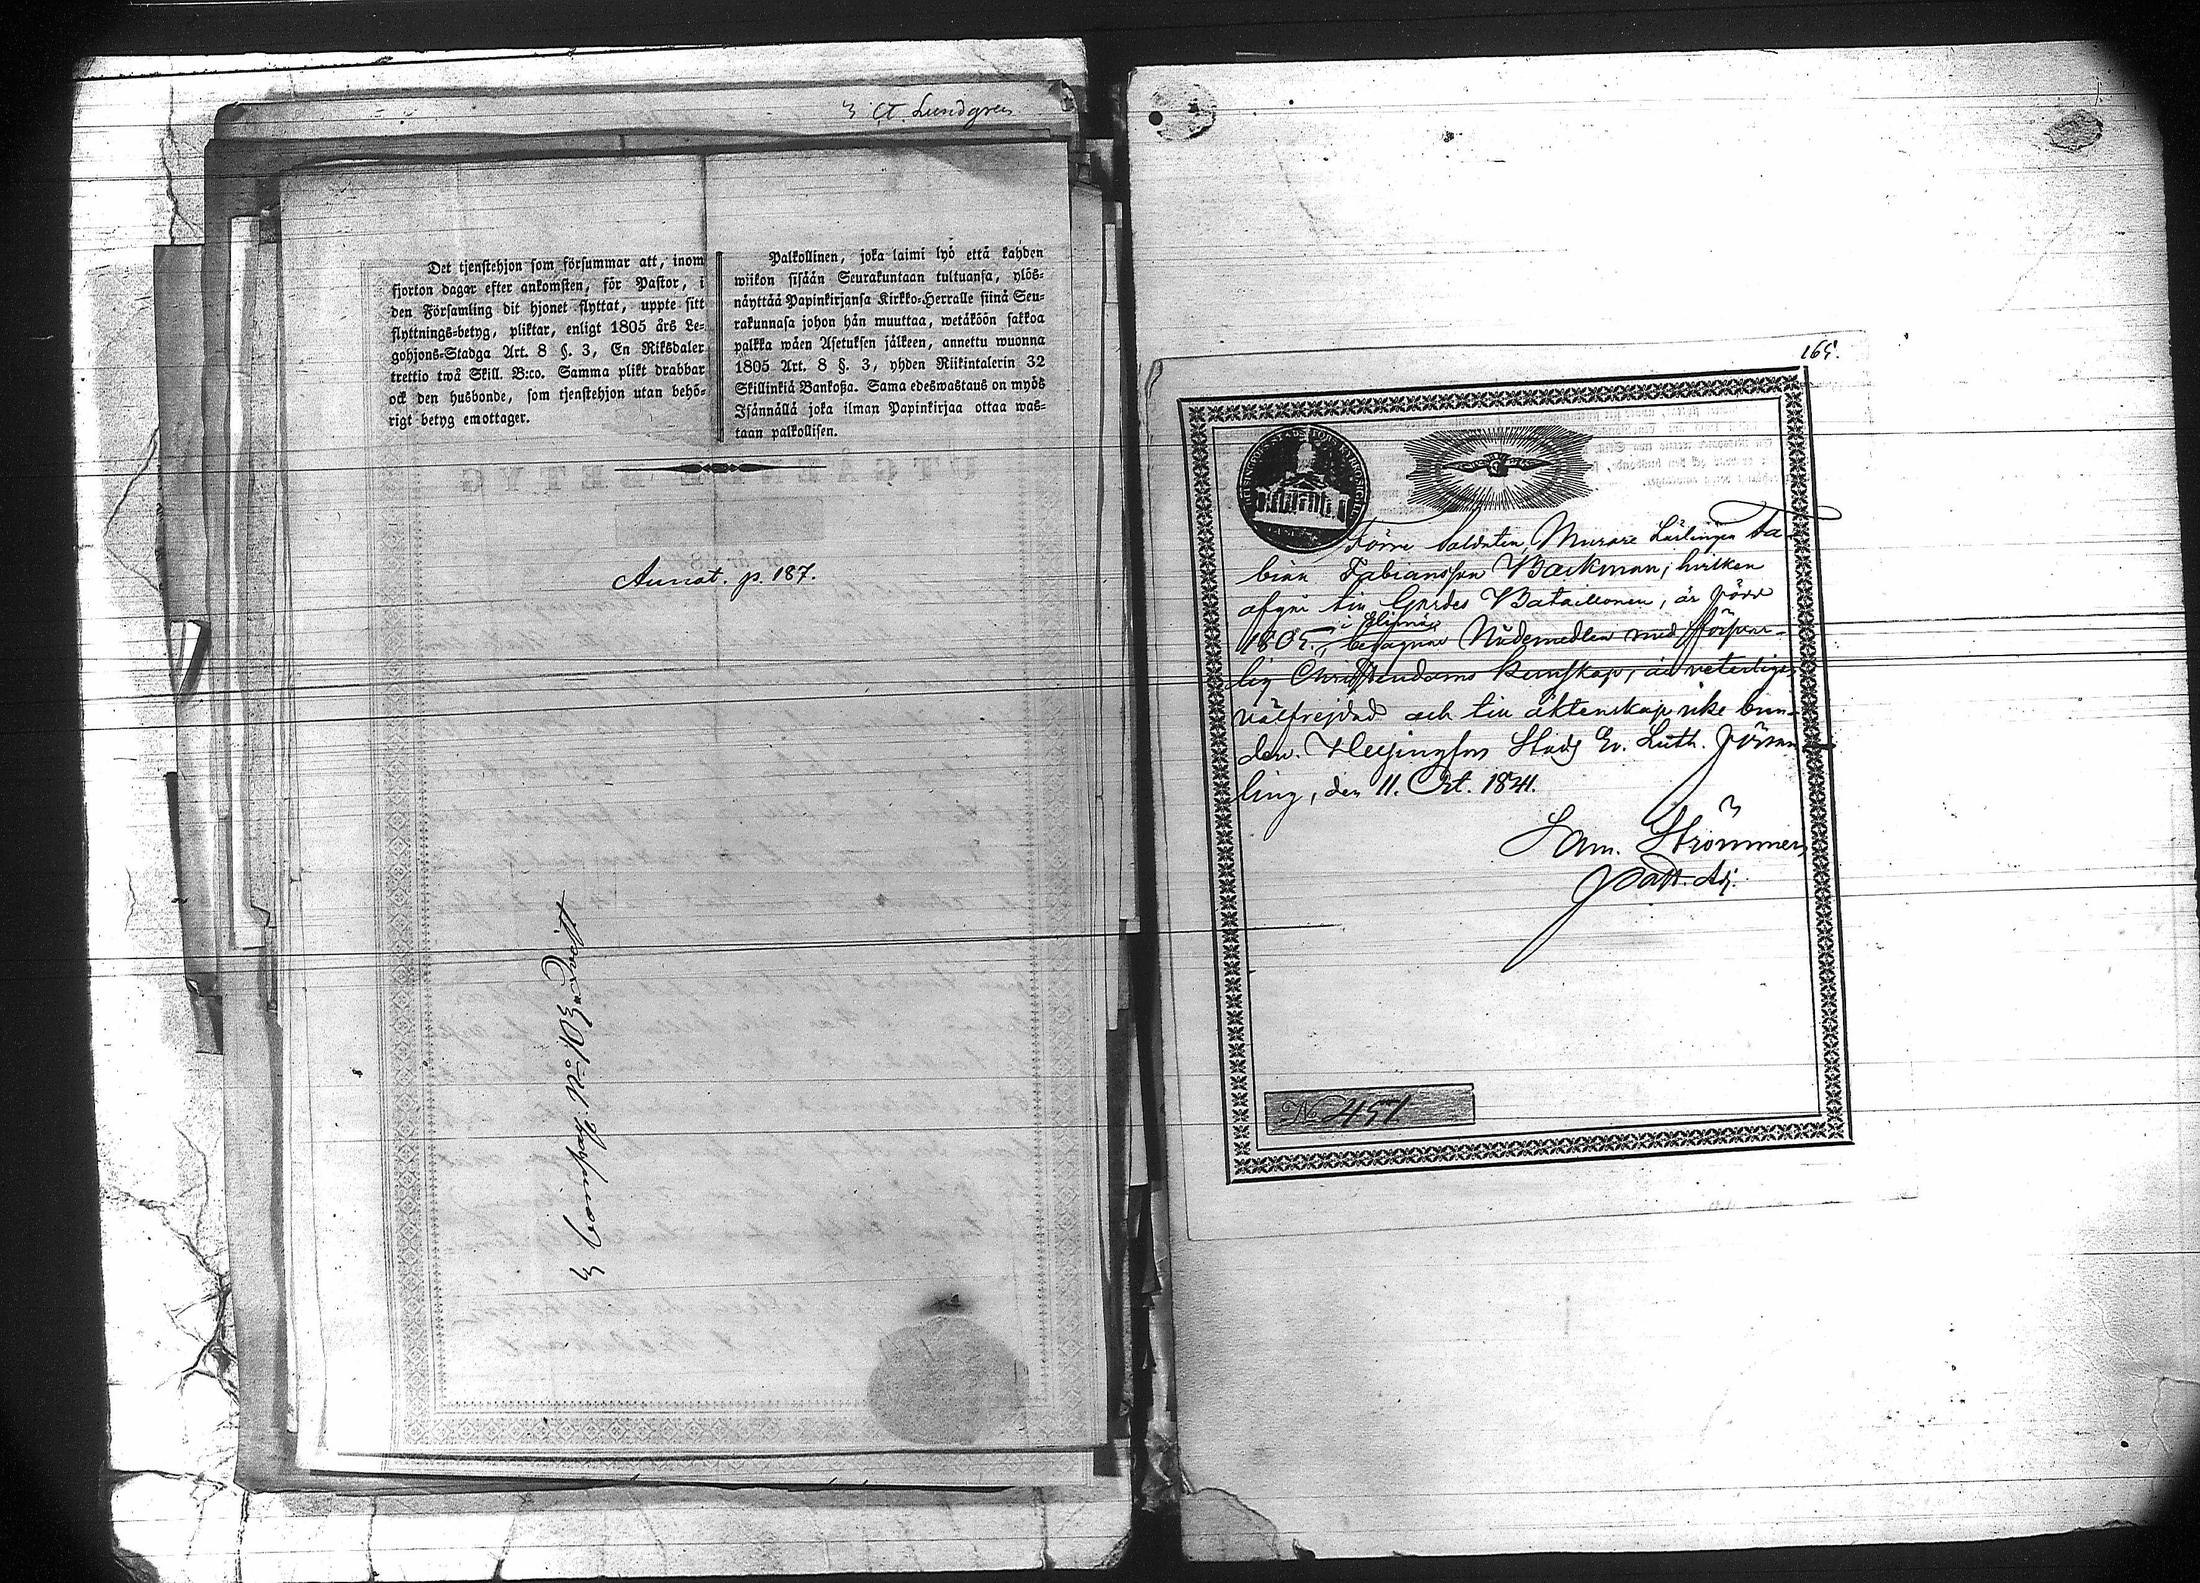 A. Lundgren
Det tjenstehjon som försummar att, inom
fjorton dagar efter ankomsten, för Pastor, i
den Församling dit hjonet flyttat, uppte sitt
flyttnings-betyg, pliktar, enligt 1805 års Le-
gohjons-Stadga Art. 8 §. 3, En Riksdaler
trettio twå Skill. B:co. Samma plikt drabbar
ock den husbonde, som tjenstehjon utan behö-
rigt betyg emottager.
Palkollinen, joka laimi lyö että kahden
wiikon sisään Seurakuntaan tultuansa, ylös-
näyttää Papinkirjansa Kirkko-Herralle siinä Seu-
rakunnasa johon hän muuttaa, wetäköön sakkoa
palkka wäen Asetuksen jälkeen, annettu wuonna
1805 Art. 8 §. 3, yhden Riikintalerin 32
Skillinkiä Bankoßa. Sama edeswastaus on myös
Isännällä joka ilman Papinkirjaa ottaa was-
taan palkollisen.
UTGÅENDE BETYG
Annot. p. 187.
N:o 103
165.
Förre Soldaten, Murare Lärlingen Fa-
bian Fabiansson Backman, hvilken
afgår till Gardes Bataillonen, är född
1805, i
begagnar Nådemedlen med försvar-
lig Christendoms kunskap, är veterligen
välfrejdad och till äktenskap icke bun-
den. Helsingfors Stads Ev. Luth. Försam-
ling, den 11. Oct. 1841.
Sam. Strömmer
Past. Adj.
No 451